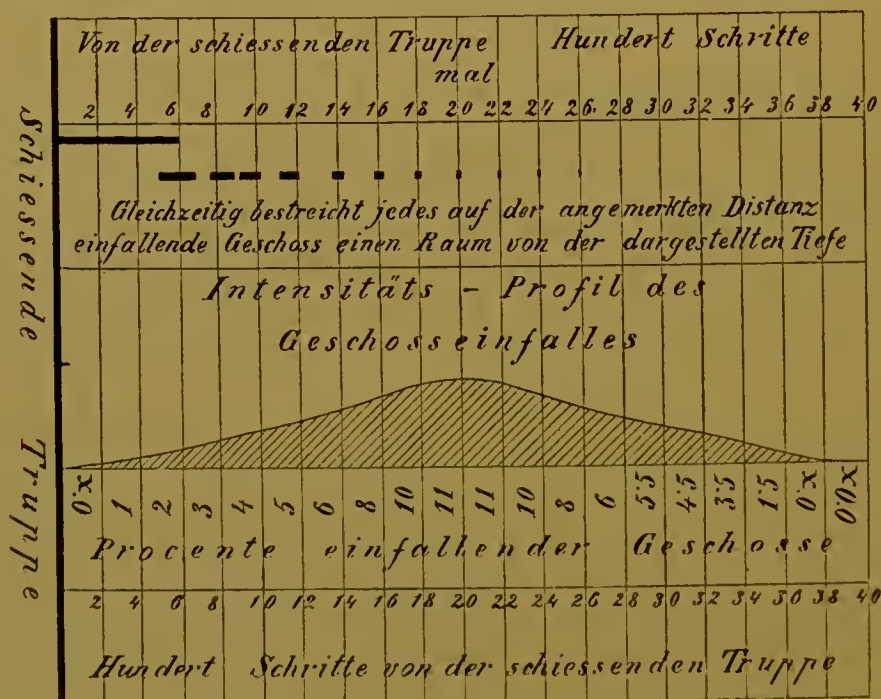 Von der schiessenden Truppe mal Hundert Schritte
2 4 6 8 10 12 14 16 18 20 22 24 26. 28 30 32 34 36 38 40
Gleichzeitig bestreicht jedes auf der angemerkten Distanz
einfallende Geschoss einen Raum von der dargestellten Tiefe
Intensitäts - Profil des
Geschosseinfalles
0.x 1 2 3 4 5 6 8 10 11 11 10 8 6 5.5 4.5 3.5 1.5 0.x 0.0x
Procente einfallender Geschosse
2 4 6 8 10 12 14 16 18 20 22 24 26 28 30 32 34 36 38 40
Hundert Schritte von der schiessenden Truppe
Schiessende Truppe